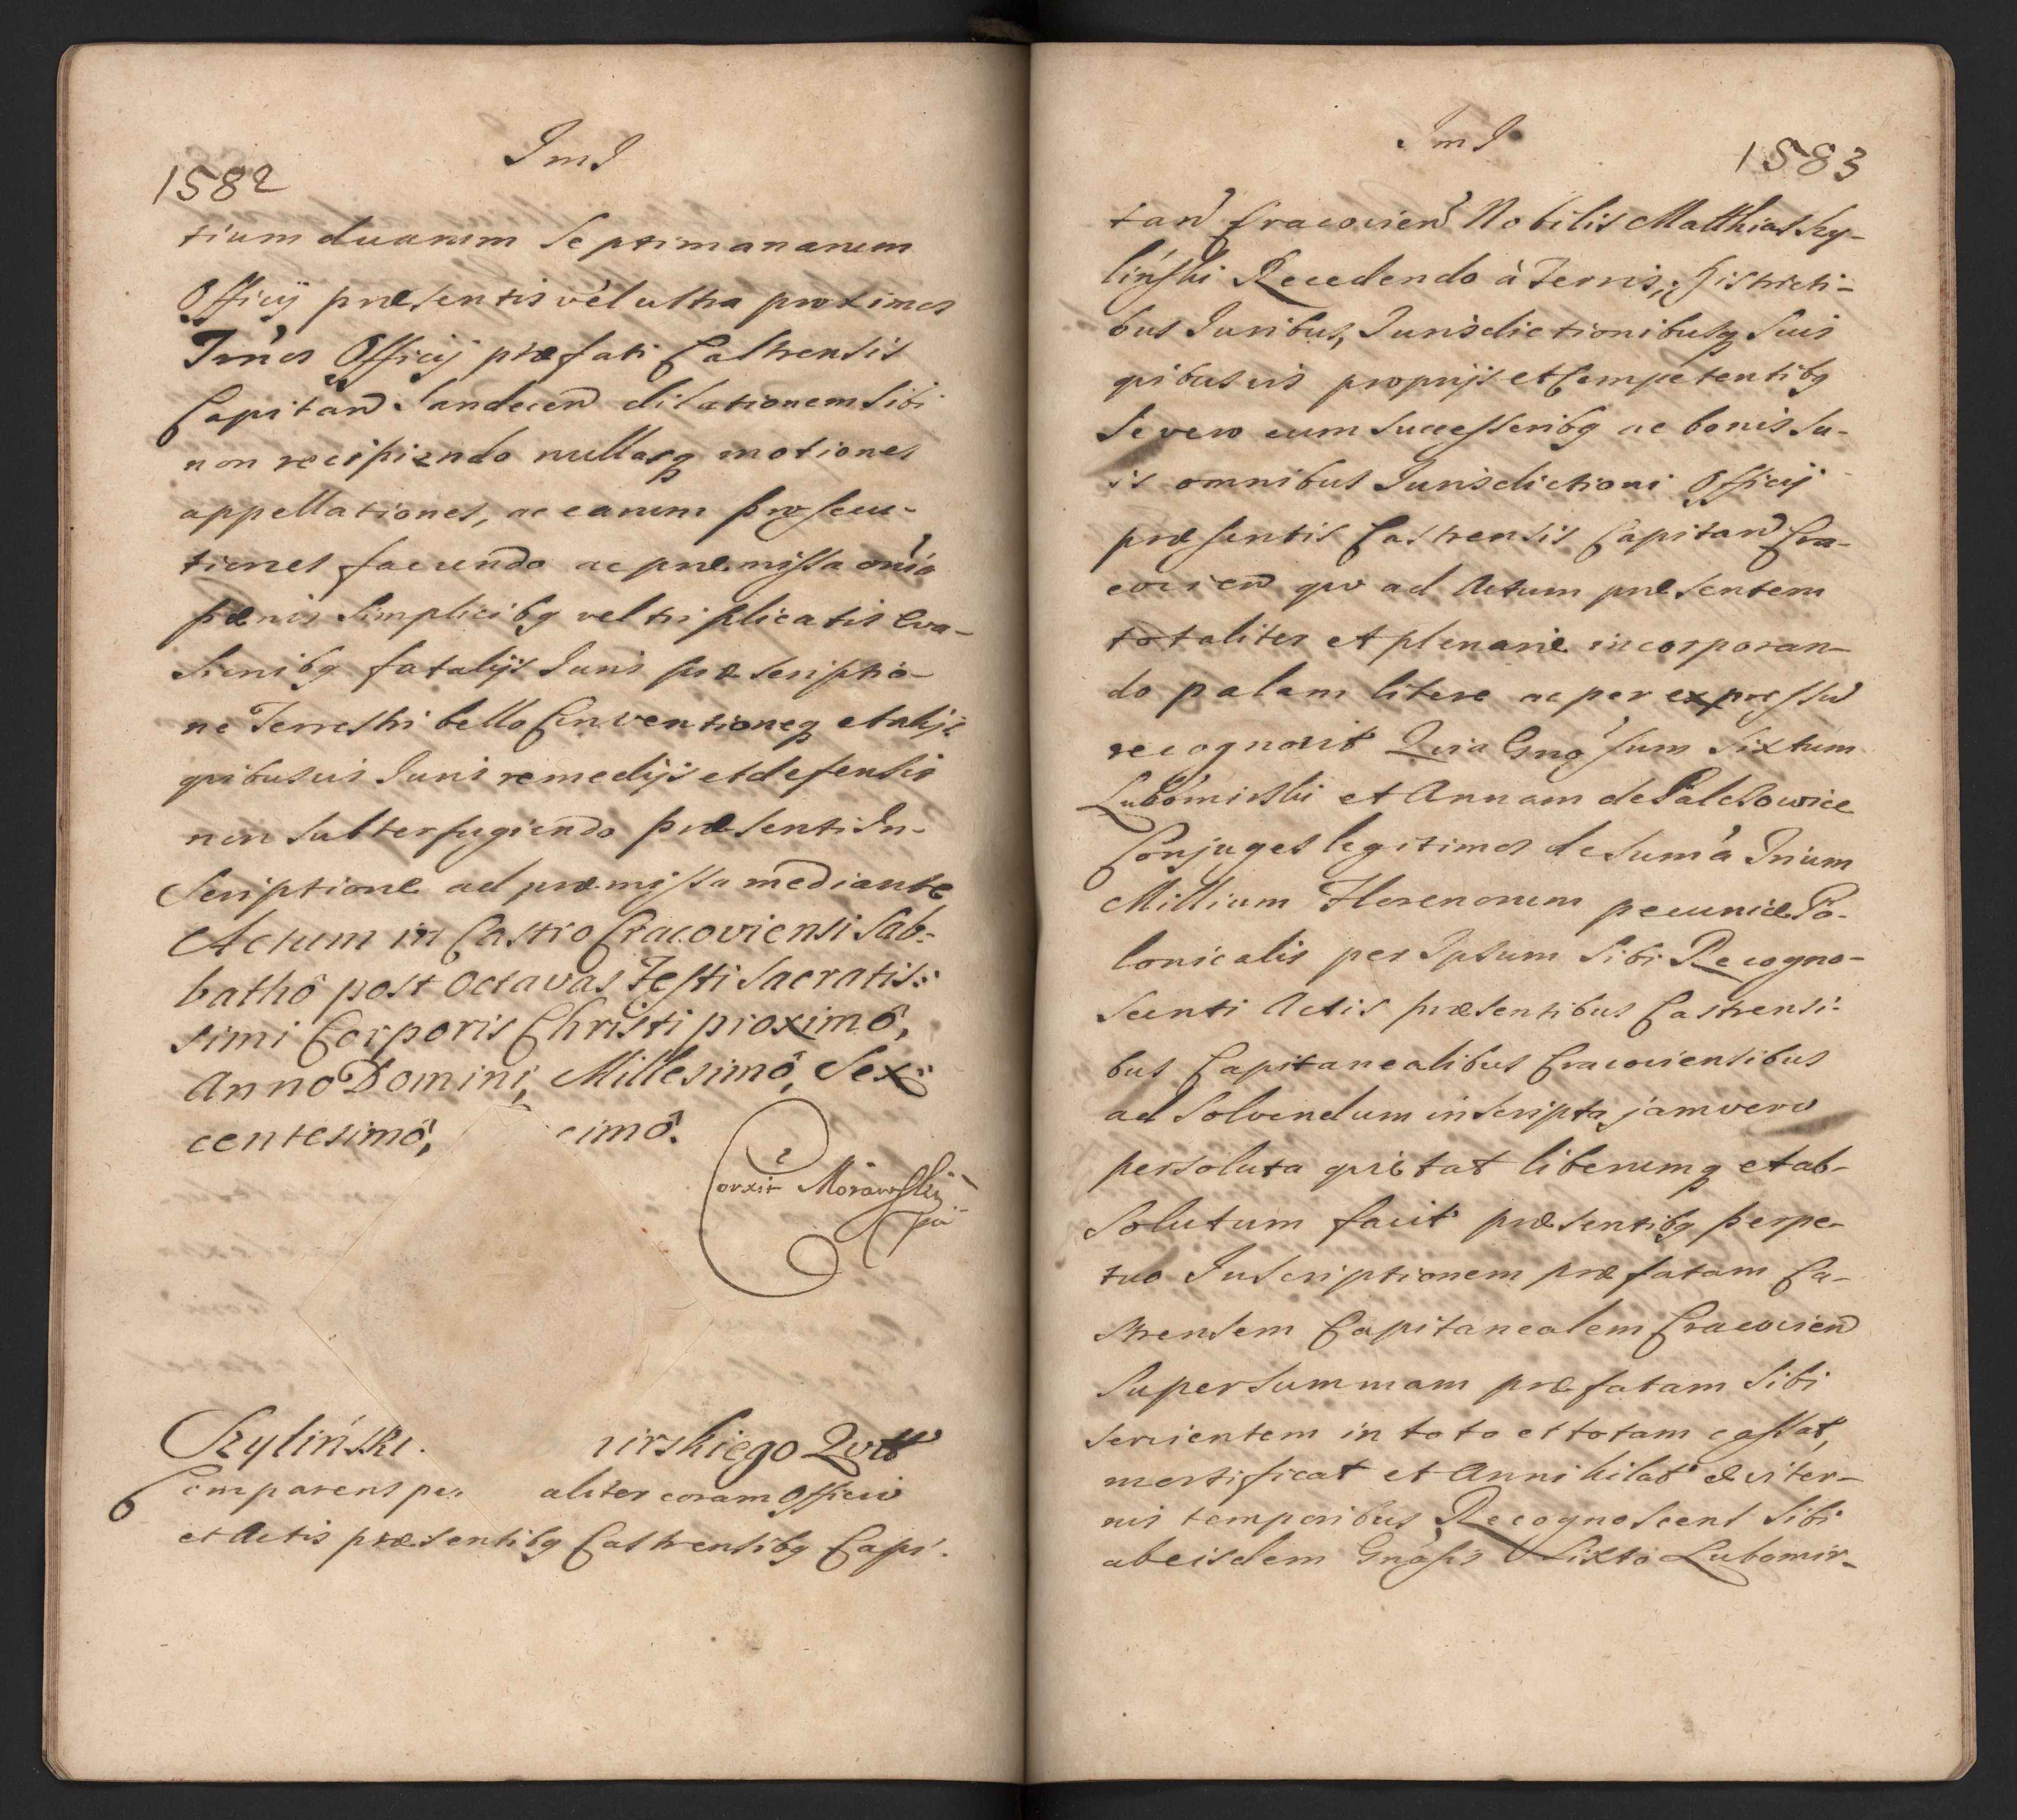 1582
JmJ
tium duarum Septimanarum
Officij præsentis vel ultra proximos
Officij præfati Castrensis
Capitan Sandecen dilationem Sibi
non recipiendo nullasq motiones
appellationes, ac earum prosecu-
tiones faciendo ac præmissa omia
pænis Simplicibq vel triplicatis Eva-
sionibq fatalijs Juris præscriptio-
ne Terrestri bello Conventioneq et alijs
quibusvis Juris remedijs et defensis
non subterfugiendo præsenti In-
scriptione ad præmissa mediante
Actum in Castro Cracoviensi Sab-
bathô post Octavas Festi Sacratis:
simi Corporis Christi proximô,
Anno Domini, Millesimô, Sex:
centesimô, cimô.
Corxit Morawski
Szyliński. irskiego Quit
Comparens per aliter coram Officio
et Actis præsentibq Castrensibq Capi-
JmJ
1583
tan Cracovien Nobilis Matthias Szy-
liński Recedendo à Terris, Districti-
bus Juribus, Jurisdictionibusq Suis
quibusvis proprijs et Competentibq
Se vero cum Successoribq ac bonis Su-
is omnibus Jurisdictioni Officij
præsentis Castrensis Capitan Cra-
covien quo ad Actum præsentem
totaliter et plenarie incorporan-
do palam libere ac per expressu
recognovit Quia Gnosum Sixtum
Lubomirski et Annam de Palczowice
Conjuges legitimos de Sumâ Trium
Millium Florenorum pecuniæ Po-
lonicalis per Ipsum Sibi Recogno-
scenti Actis præsentibus Castrensi-
bus Capitanealibus Cracoviensibus
ad Solvendum inscripta, jam vero
persoluta quietat liberumq et ab-
solutum facit præsentibq perpe-
tuo Inscriptionem præfatam Ca-
strensem Capitanealem Cracovien
Super Summam præfatam Sibi
servientem in toto et totam cassat,
mortificat et Annihilat æviter-
nis temporibus, Recognoscens Sibi
ab eisdem Gnosis Sixto Lubomir-